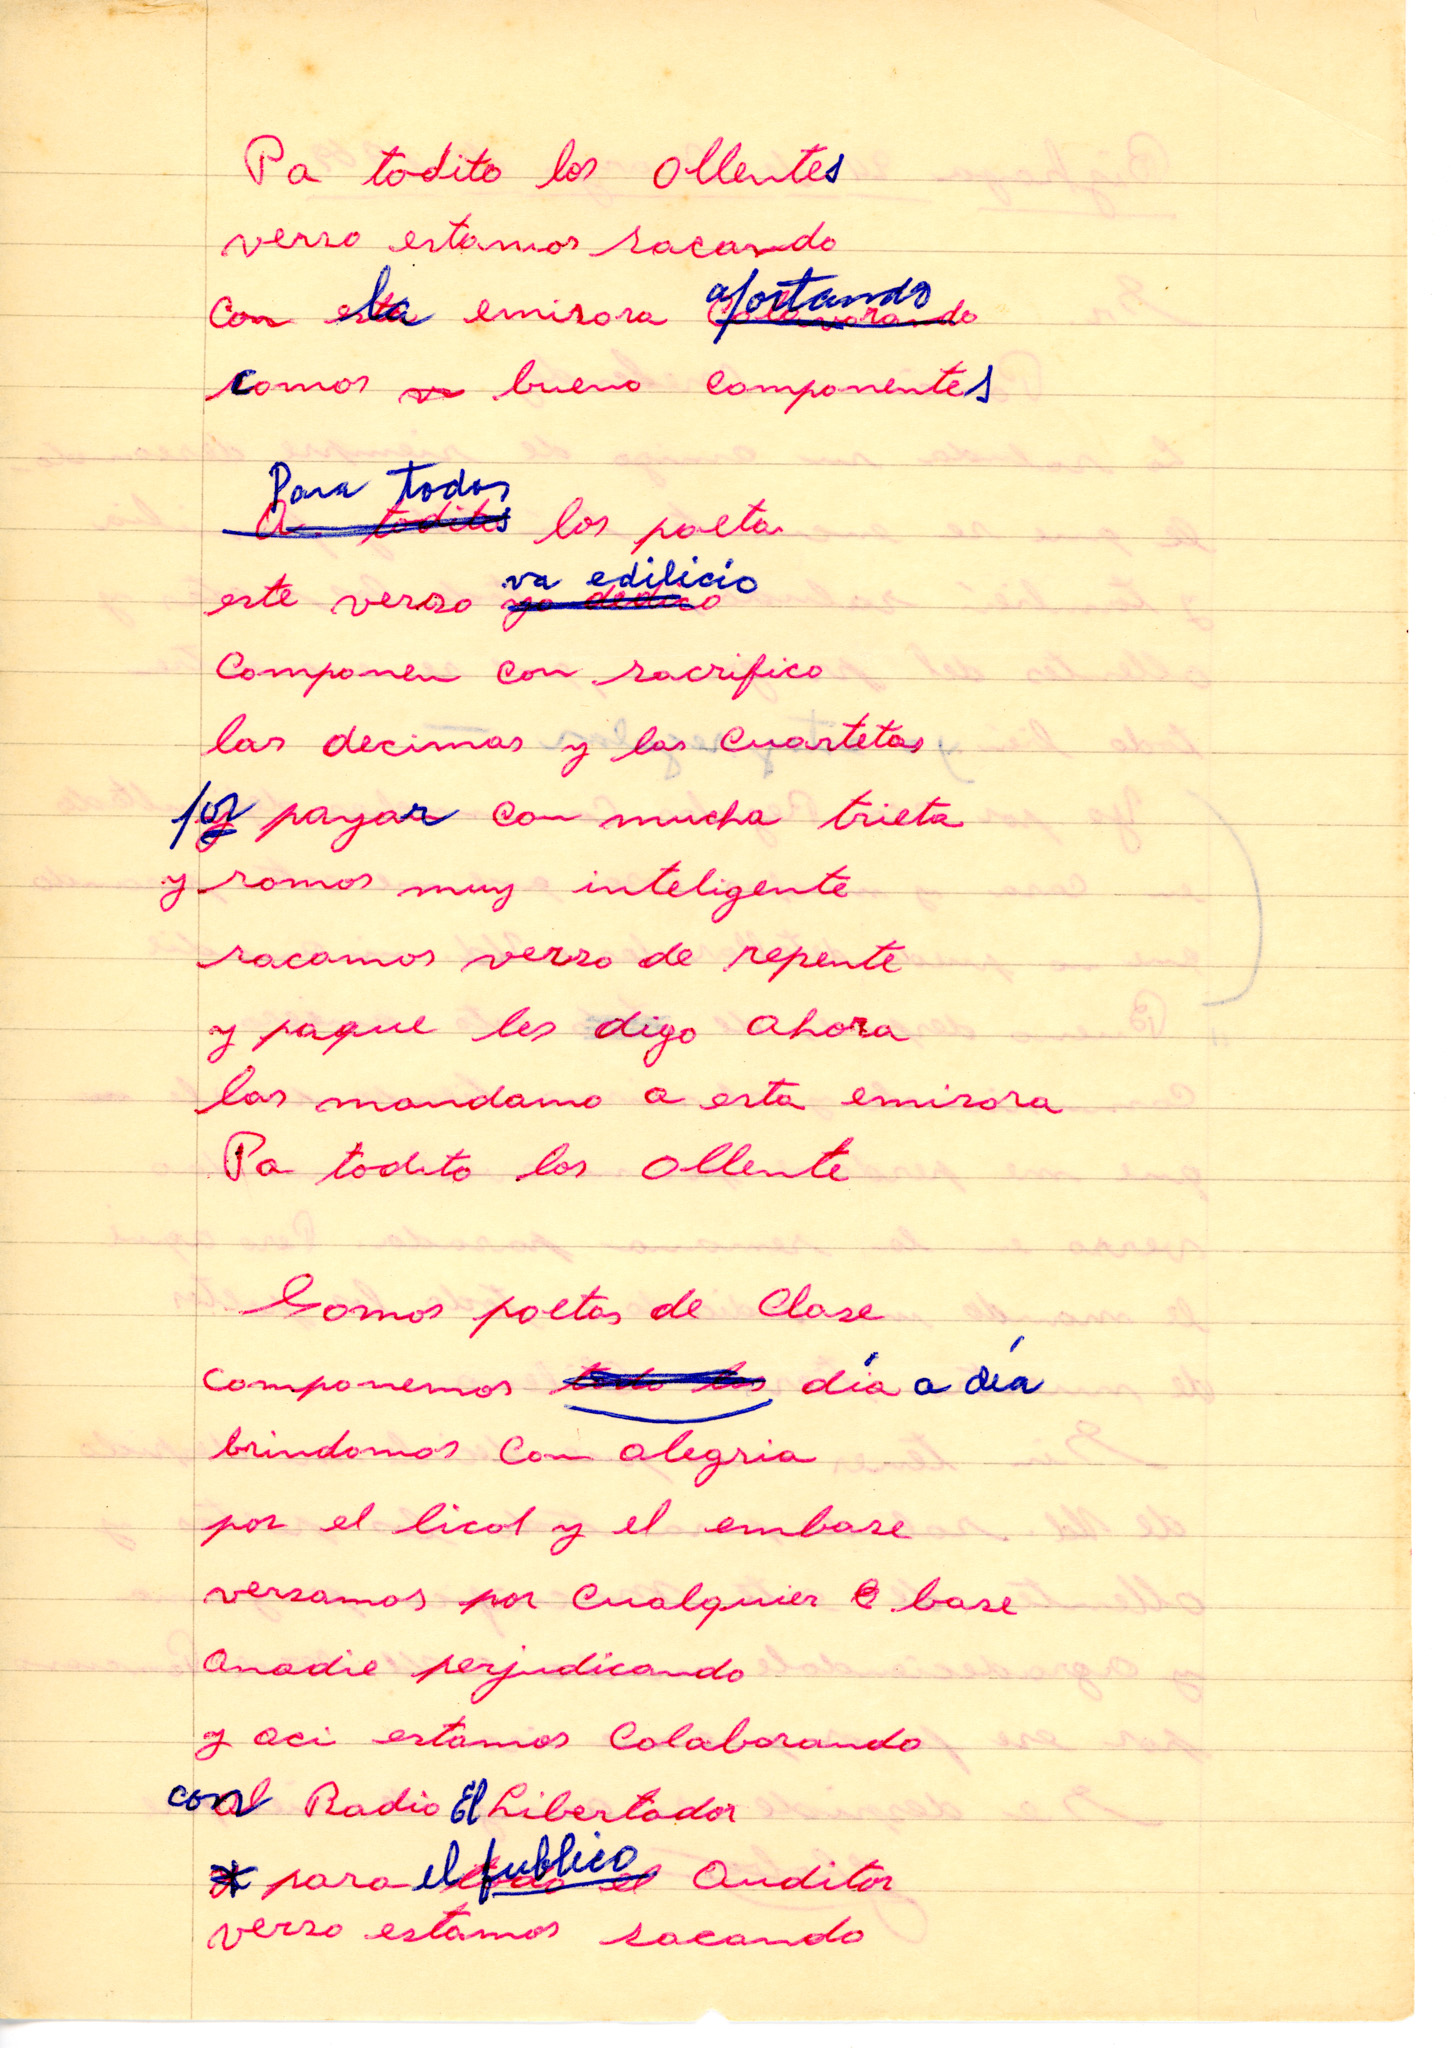 Pa todito los Ollentes
verso estamos sacando
Con la emisora aportando
comos bueno componentes
Para todos
A todites los poeta
va edilicio
este verso yo dedico
Componen con sacrifico
las decimas y las cuartetas
por payar con mucha trieta
y somos muy inteligente
sacamos verso de repente
y paque les digo ahora
las mandamo a esta emisora
Pa todito los Ollente
Somos poetas de Clase
componemos todo los día a día
brindamos Con alegria
por el licol y el embase
versamos por Cualquier base
Anadie perjudicando
y aci estamos Colaborando
con Radio El Libertador
para el publico Auditor
verso estamos sacando